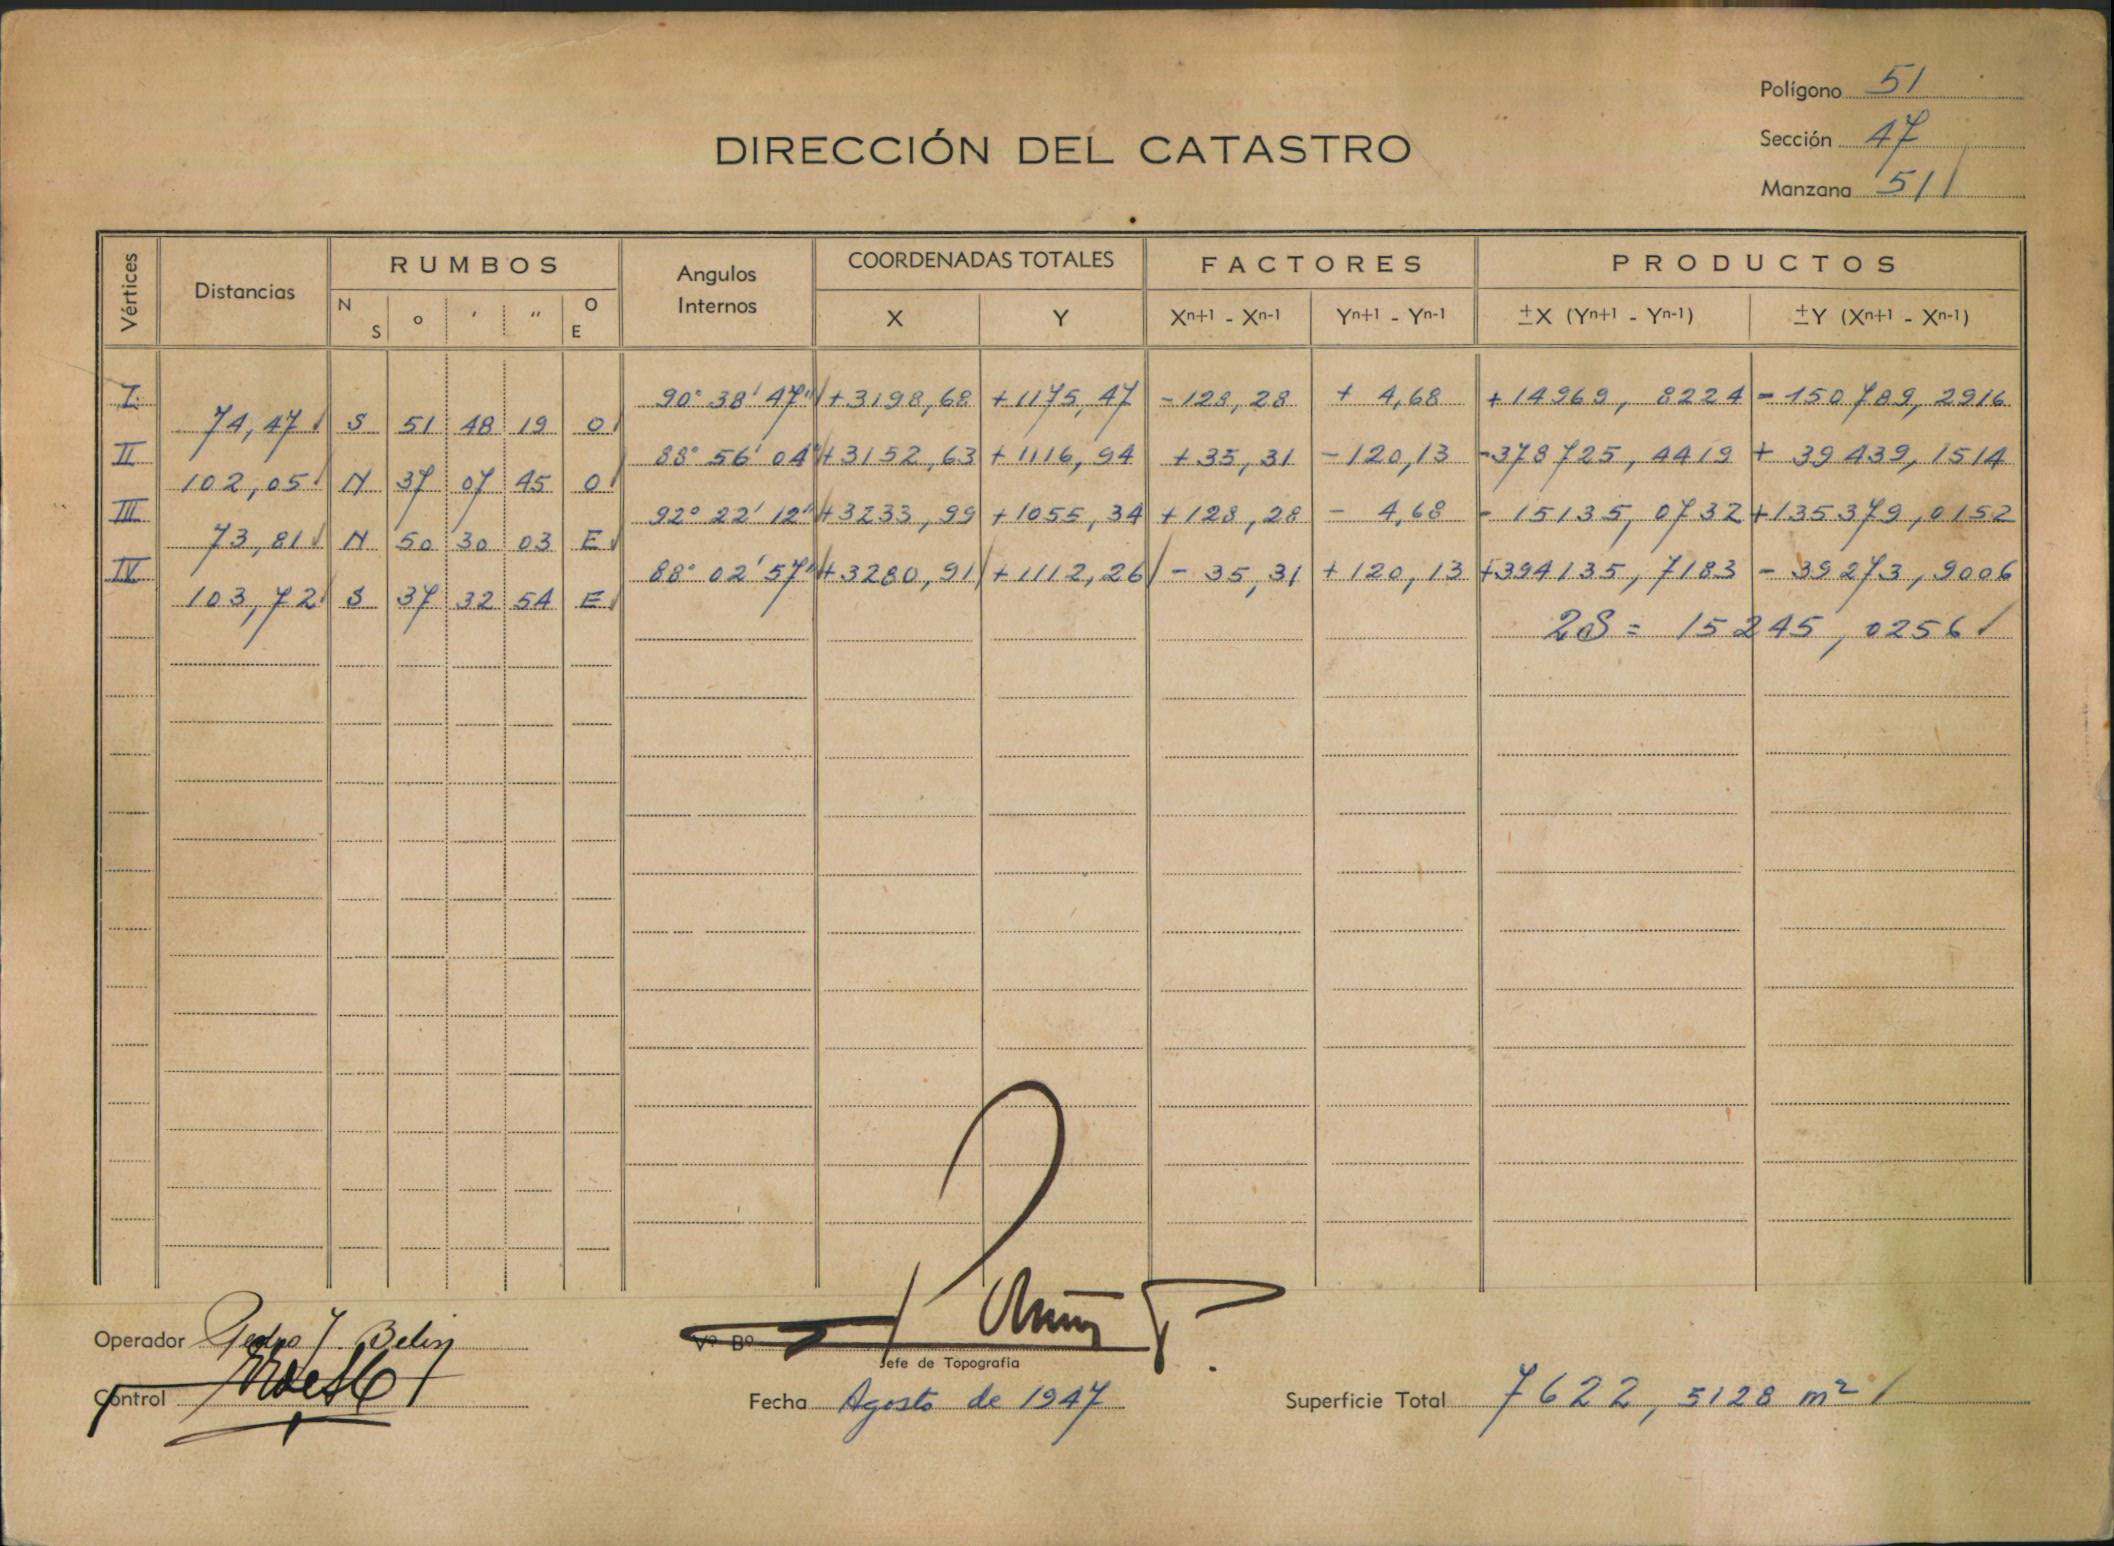 Polígono 51
Sección 47
Manzana 511
DIRECCIÓN DEL CATASTRO
Vértices Distancias RUMBOS Angulos Internos COORDENADAS TOTALES FACTORES PRODUCTOS
N S o ′ ″ O E X Y Xn+1 - Xn-1 Yn+1 - Yn-1 ±X (Yn+1 - Yn-1) ±Y (Xn+1 - Xn-1)
I. 90° 38' 47" +3198,68 +1175,47 -128,28 + 4,68 +14969,8224 -150789,2916
74,47 S 51 48 19 O
II 88° 56' 04" +3152,63 +1116,94 +35,31 -120,13 -378725,4419 + 39439,1514
102,05 N 37 07 45 O
III 92° 22' 12" +3233,99 +1055,34 +128,28 - 4,68 - 15135,0732 +135379,0152
73,81 N 50 30 03 E
IV 88° 02' 57" +3280,91 +1112,26 - 35,31 +120,13 +394135,7183 - 39273,9006
103,72 S 37 32 54 E
2S = 15245,0256
Operador Pedro J. Belin
Vº Bº
Jefe de Topografía
Control
Fecha Agosto de 1947
Superficie Total 7622,5128 m²